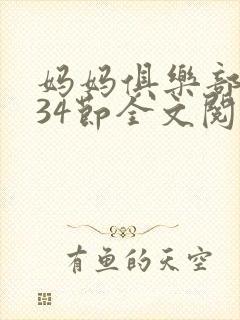 妈妈俱樂部
34節全文閱
有鱼的天空